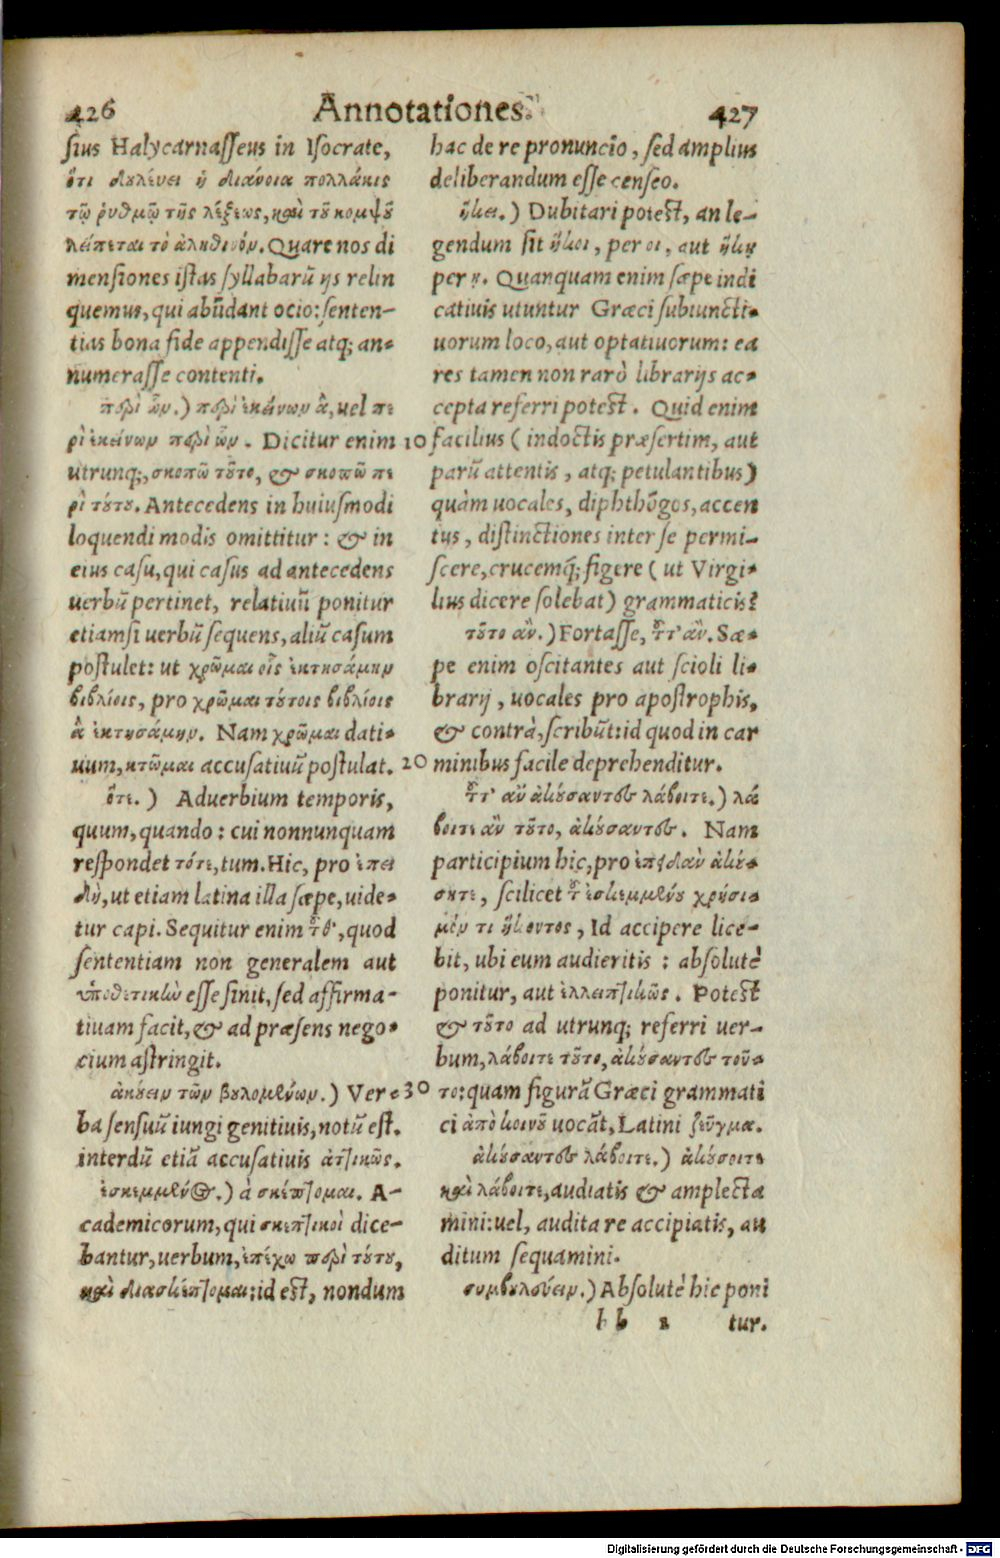 426 Annotationes. 427
sius Halycarnasseus in Isocrate,
ὅτι δουλεύει ἡ διάνοια πολλάκις
τῷ ῥυθμῷ τῆς λέξεως, καὶ τοῦ κομψοῦ
λείπεται τὸ ἀληθινόν. Quare nos di
mensiones istas syllabarũ ijs relin
quemus, qui abũdant ocio: senten-
tias bona fide appendisse atq; an-
numerasse contenti.
περὶ ὧν.) περὶ ἐκείνων ἃ, uel πε
ρὶ ἐκείνων περὶ ὧν. Dicitur enim 10
utrunq;, σκοπῶ τοῦτο, & σκοπῶ πε
ρὶ τούτου. Antecedens in huiusmodi
loquendi modis omittitur: & in
eius casu, qui casus ad antecedens
uerbũ pertinet, relatiuũ ponitur
etiamsi uerbũ sequens, aliũ casum
postulet: ut χρῶμαι οἷς ἐκτησάμην
βιβλίοις, pro χρῶμαι τούτοις βιβλίοις
ἃ ἐκτησάμην. Nam χρῶμαι dati-
uum, κτῶμαι accusatiuũ postulat. 20
ὅτε.) Aduerbium temporis,
quum, quando: cui nonnunquam
respondet τότε, tum. Hic, pro ἐπει
δὴ, ut etiam latina illa sæpe, uide-
tur capi. Sequitur enim τότ', quod
sententiam non generalem aut
ὑποθετικὴν esse sinit, sed affirma-
tiuam facit, & ad præsens nego-
cium astringit.
ἀκούειν τῶν βουλομένων.) Ver- 30
ba sensuũ iungi genitiuis, notũ est.
interdũ etiã accusatiuis ἀττικῶς.
ἐσκεμμένος.) à σκέπτομαι. A-
cademicorum, qui σκεπτικοὶ dice-
bantur, uerbum, ἐπέχω περὶ τούτου,
καὶ διασκέπτομαι: id est, nondum
hac de re pronuncio, sed amplius
deliberandum esse censeo.
ἥκει.) Dubitari potest, an le-
gendum sit ἥκοι, per οι, aut ἥκῃ
per η. Quanquam enim sæpe indi
catiuis utuntur Græci subiuncti-
uorum loco, aut optatiuorum: ea
res tamen non rarò librarijs ac-
cepta referri potest. Quid enim
facilius (indoctis præsertim, aut
parũ attentis, atq; petulantibus)
quàm uocales, diphthõgos, accen
tus, distinctiones inter se permi-
scere, crucemq́; figere (ut Virgi-
lius dicere solebat) grammaticis?
τοῦτο ἂν.) Fortasse, τοῦτ' ἂν. Sæ-
pe enim oscitantes aut scioli li-
brarij, uocales pro apostrophis,
& contrà, scribũt: id quod in car
minibus facile deprehenditur.
τοῦτ' ἂν ἀκούσαντες λάβοιτε.) λά
βοιτε ἂν τοῦτο, ἀκούσαντες. Nam
participium hic, pro ἐπειδὰν ἀκού-
σητε, scilicet τοῦ ἐσκεμμένου χρήσι-
μόν τι ἥκοντος, Id accipere lice-
bit, ubi eum audieritis: absolutè
ponitur, aut ἐλλειπτικῶς. Potest
& τοῦτο ad utrunq; referri uer-
bum, λάβοιτε τοῦτο, ἀκούσαντες τοῦ-
το: quam figurã Græci grammati
ci ἀπὸ κοινοῦ uocãt, Latini ζεῦγμα.
ἀκούσαντες λάβοιτε.) ἀκούσοιτε
καὶ λάβοιτε, audiatis & amplecta
mini: uel, audita re accipiatis, au
ditum sequamini.
συμβουλεύειν.) Absolutè hic poni
b b 2 tur.
Digitalisierung gefördert durch die Deutsche Forschungsgemeinschaft - DFG